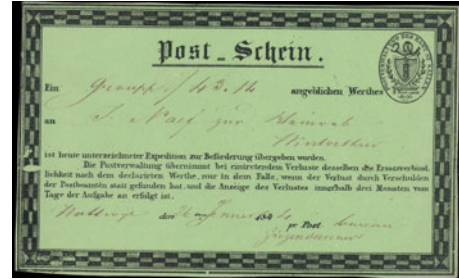 Post-Schein.
Ein Groupp f 43.14 angeblichen Werthes
an J. Naef zur
Winterthur
ist heute unterzeichneter Expedition zur Beförderung übergeben worden.
Die Postverwaltung übernimmt bei eintretendem Verluste desselben die Ersatzverbind
lichkeit nach dem declarirten Werthe, nur in dem Falle, wenn der Verlust durch Verschulden
der Postbeamten statt gefunden hat, und die Anzeige des Verlustes innerhalb drei Monaten vom
Tage der Aufgabe an erfolgt ist.
den 26 Jenner 184
pr. Post